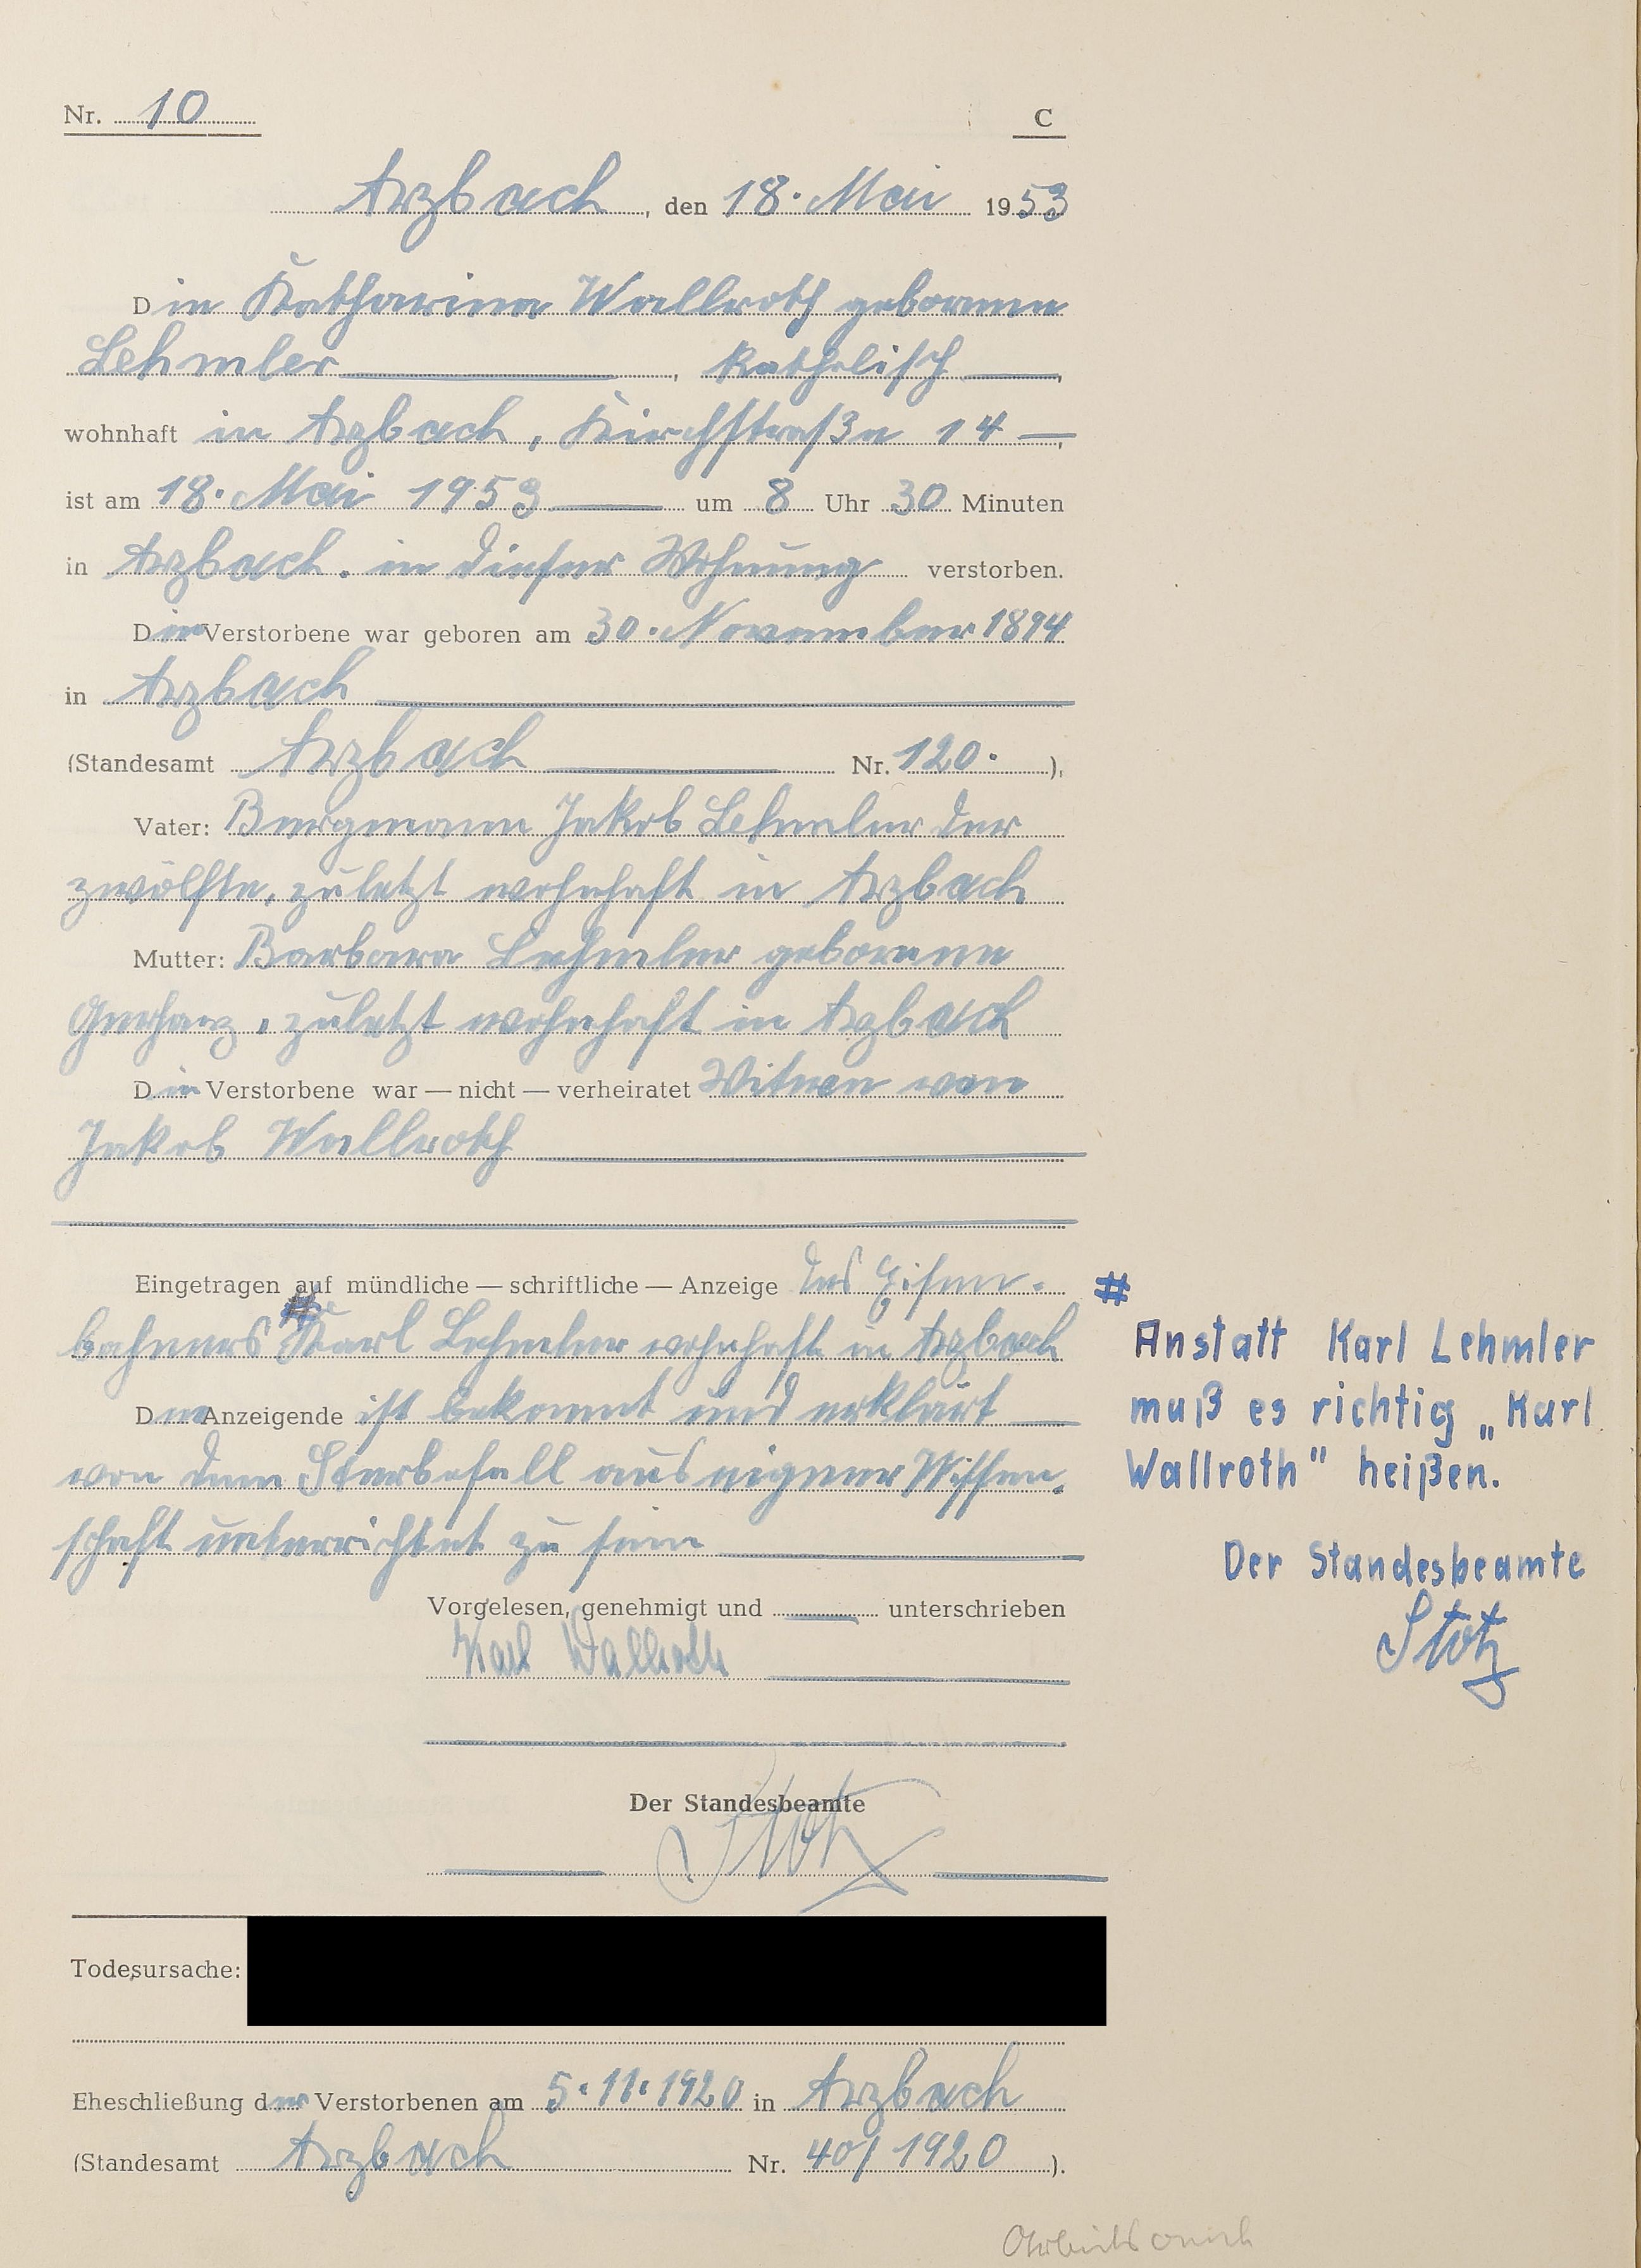 Nr. 10
C
Arzbach, den 18. Mai 1953
Die Katharina Wallroth geborene
Lehmler, katholisch,
wohnhaft in Arzbach, Kirchstraße 14,
ist am 18. Mai 1953 um 8 Uhr 30 Minuten
in Arzbach. in dieser Wohnung verstorben.
Die Verstorbene war geboren am 30. November 1894
in Arzbach
(Standesamt Arzbach Nr. 120.),
Vater: Bergmann Jakob Lehmler der
zwölfte, zuletzt wohnhaft in Arzbach
Mutter: Barbara Lehmler geborene
Gerharz, zuletzt wohnhaft in Arzbach
Die Verstorbene war — nicht — verheiratet Witwe von
Jakob Wallroth
Eingetragen auf mündliche — schriftliche — Anzeige des Eisen-
bahners # Karl Lehmler wohnhaft in Arzbach
Der Anzeigende ist bekannt und erklärt
von dem Sterbefall aus eigener Wissen-
schaft unterrichtet zu sein
Vorgelesen, genehmigt und unterschrieben
Karl Wallroth
Der Standesbeamte
Stotz
#
Anstatt Karl Lehmler
muß es richtig „Karl
Wallroth" heißen.
Der Standesbeamte
Stotz
Todesursache:
Eheschließung der Verstorbenen am 5.11.1920 in Arzbach
(Standesamt Arzbach Nr. 40/1920).